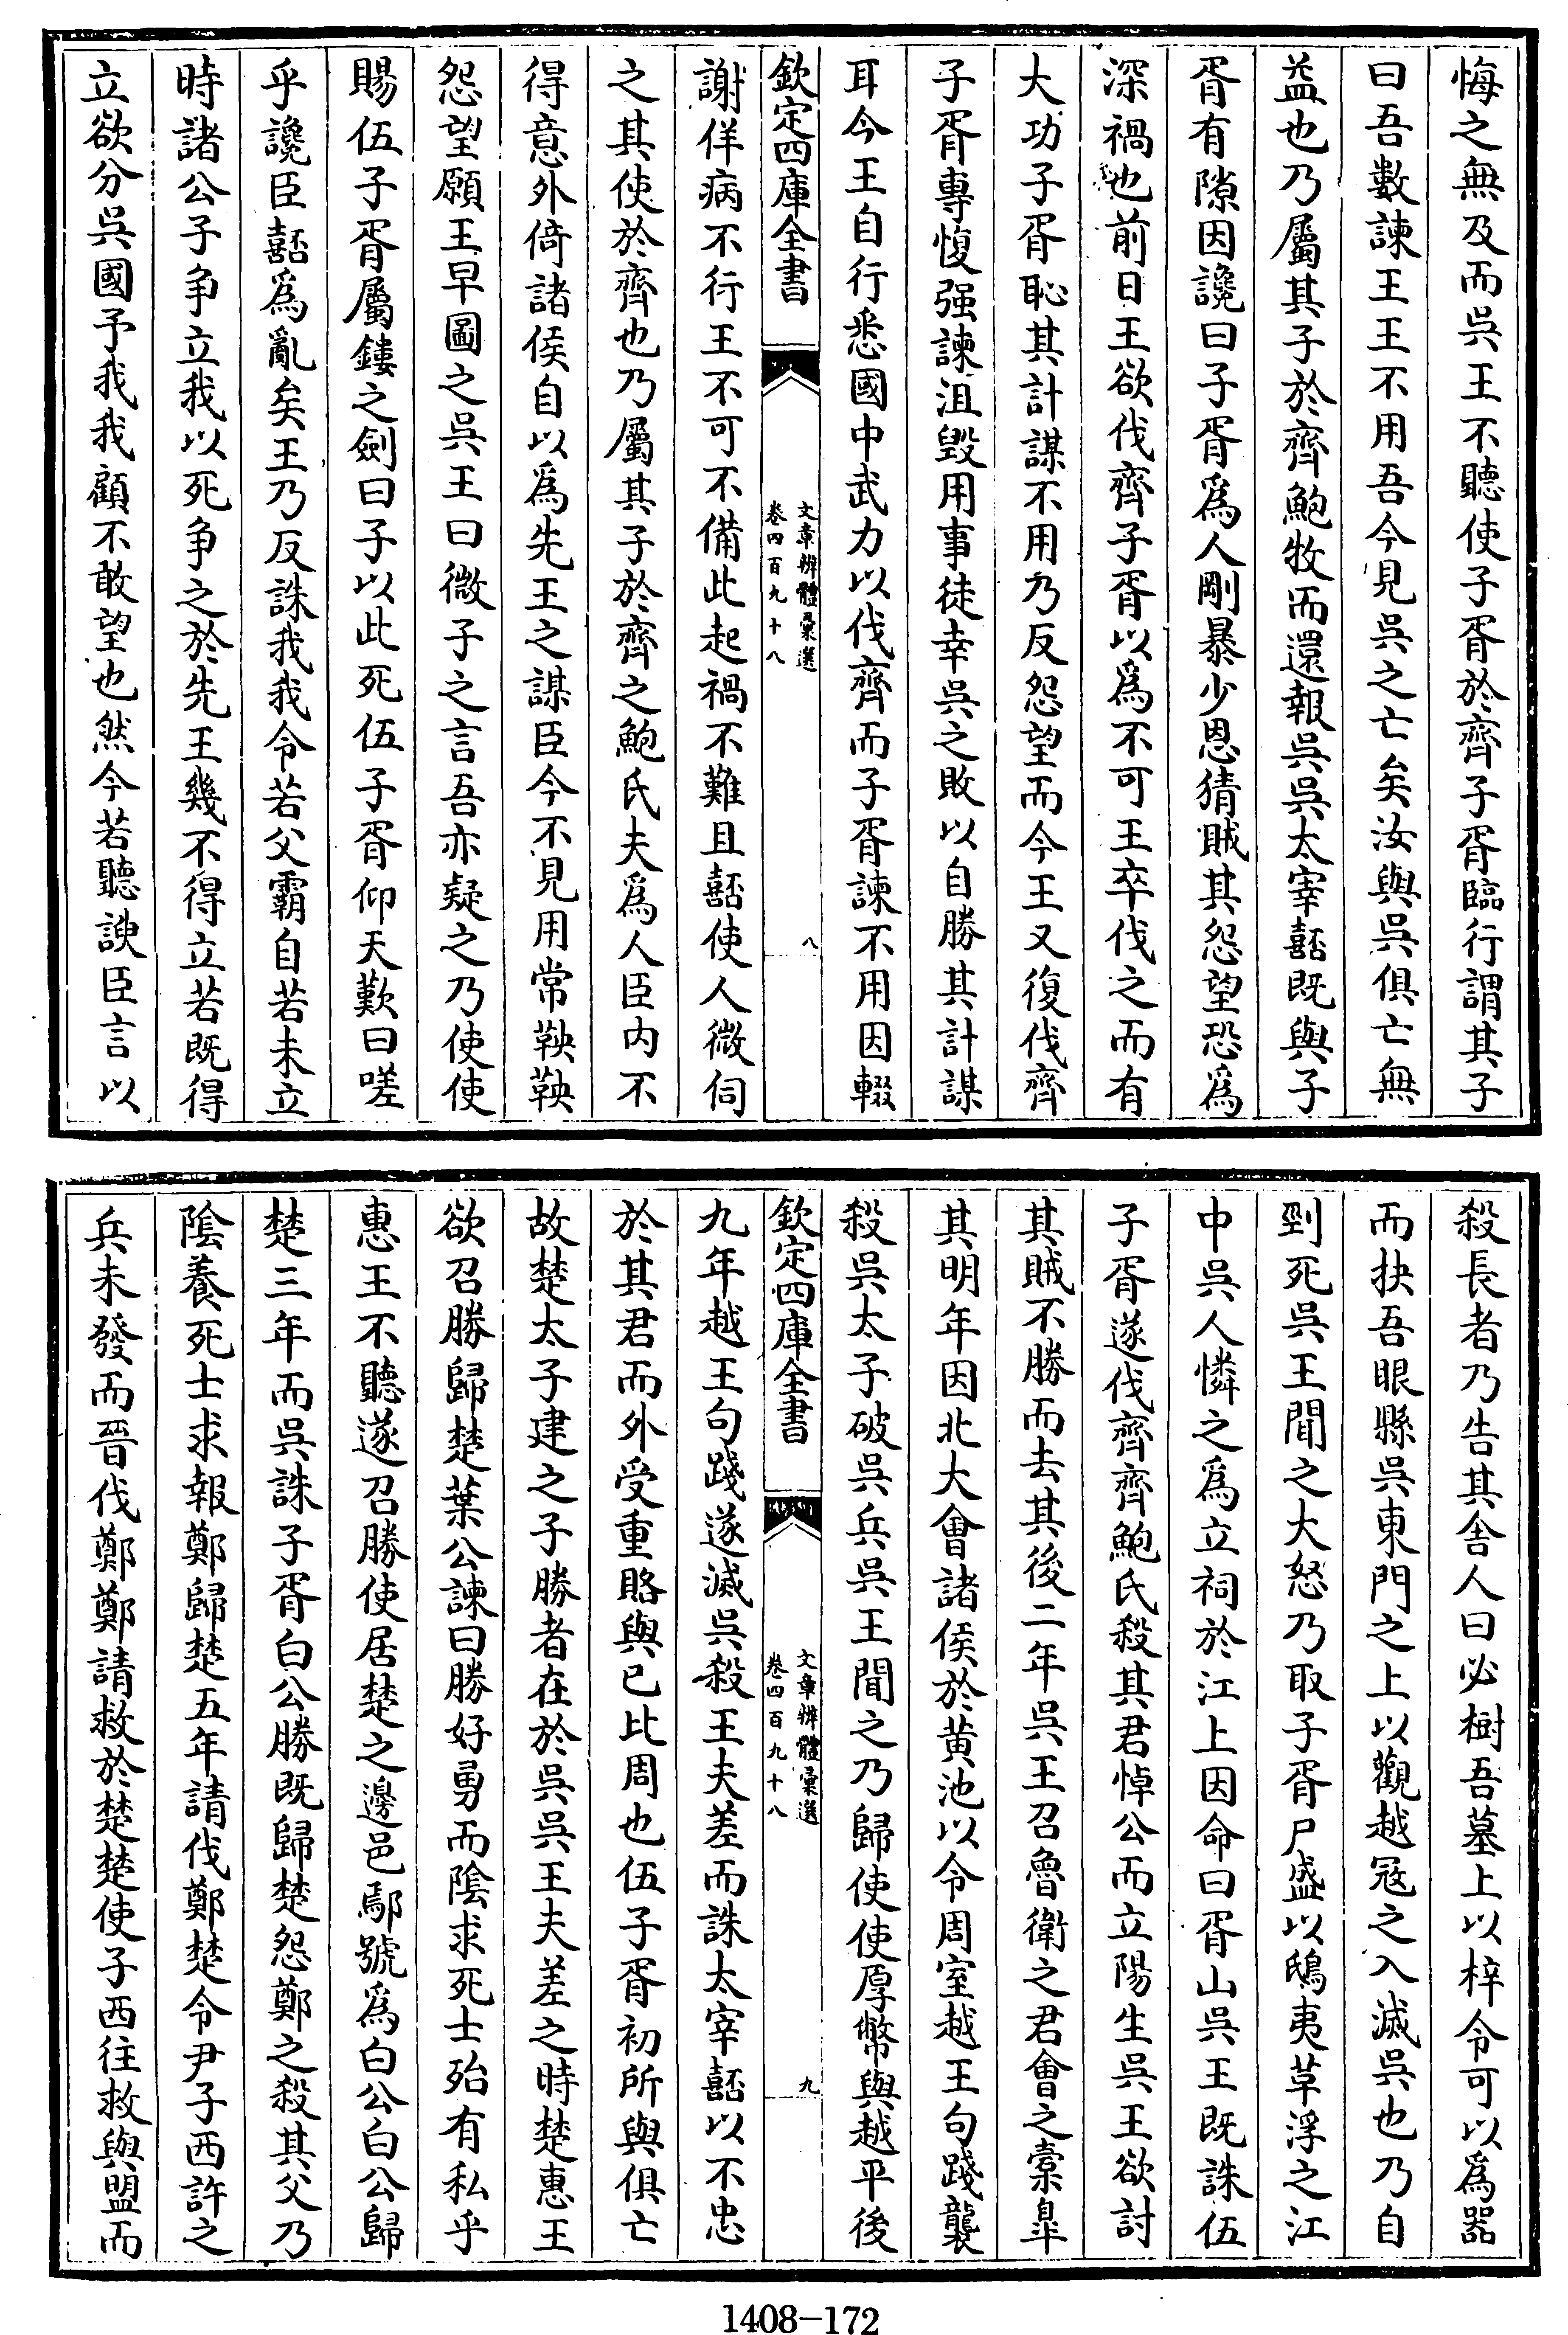 悔之無及而吳王不聽使子胥於齊子胥臨行謂其子
曰吾數諫王王不用吾今見吳之亡矣汝與吳俱亡無
益也乃屬其子於齊鮑牧而還報吳吳太宰嚭既與子
胥有隙因讒曰子胥為人剛暴少恩猜賊其怨望恐為
深禍也前日王欲伐齊子胥以為不可王卒伐之而有
大功子胥恥其計謀不用乃反怨望而今王又復伐齊
子胥專愎强諫沮毀用事徒幸吳之敗以自勝其計謀
耳今王自行悉國中武力以伐齊而子胥諫不用因輟
欽定四庫全書
文章辨體彚選
卷四百九十八
八
謝佯病不行王不可不備此起禍不難且嚭使人微伺
之其使於齊也乃屬其子於齊之鮑氏夫為人臣内不
得意外倚諸侯自以為先王之謀臣今不見用常鞅鞅
怨望願王早圖之吳王曰微子之言吾亦疑之乃使使
賜伍子胥屬鏤之劍曰子以此死伍子胥仰天歎曰嗟
乎讒臣嚭為亂矣王乃反誅我我令若父霸自若未立
時諸公子争立我以死争之於先王幾不得立若既得
立欲分吳國予我我顧不敢望也然今若聽諛臣言以
殺長者乃告其舍人曰必樹吾墓上以梓令可以為器
而抉吾眼縣吳東門之上以觀越冦之入滅吳也乃自
剄死吳王聞之大怒乃取子胥尸盛以鴟夷草浮之江
中吳人憐之為立祠於江上因命曰胥山吳王既誅伍
子胥遂伐齊齊鮑氏殺其君悼公而立陽生吳王欲討
其賊不勝而去其後二年吳王召魯衛之君會之橐臯
其明年因北大會諸侯於黃池以令周室越王句踐襲
殺吳太子破吳兵吳王聞之乃歸使使厚幣與越平後
欽定四庫全書
文章辨體彚選
卷四百九十八
九
九年越王句踐遂滅吳殺王夫差而誅太宰嚭以不忠
於其君而外受重賂與已比周也伍子胥初所與俱亡
故楚太子建之子勝者在於吳吳王夫差之時楚惠王
欲召勝歸楚葉公諫曰勝好勇而陰求死士殆有私乎
惠王不聽遂召勝使居楚之邊邑鄢號為白公白公歸
楚三年而吳誅子胥白公勝既歸楚怨鄭之殺其父乃
陰養死士求報鄭歸楚五年請伐鄭楚令尹子西許之
兵未發而晉伐鄭鄭請救於楚楚使子西往救與盟而
1408-172